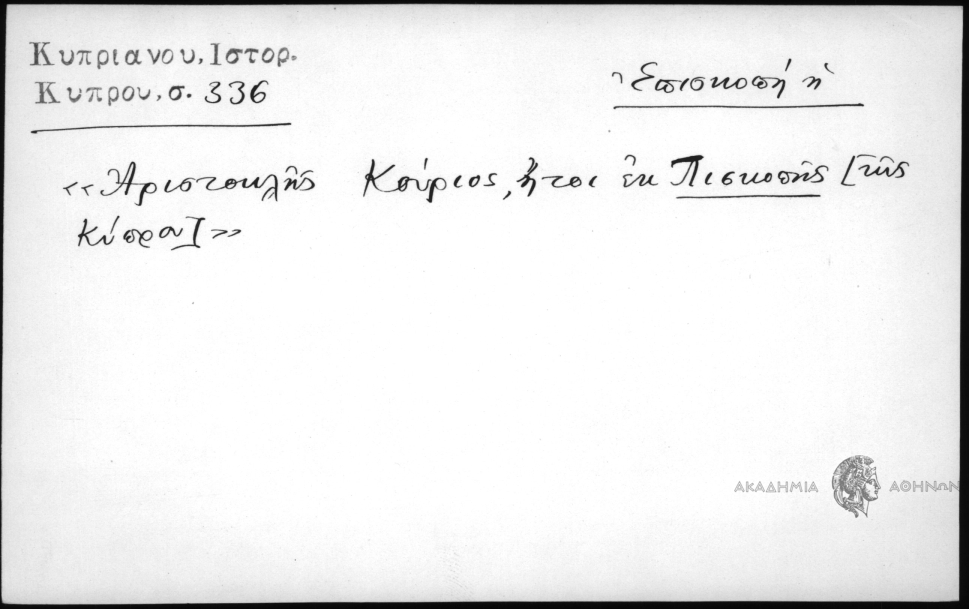 Κυπριανου, Ιστορ.
Κυπρου, σ. 336
Ἐπισκοπή ἡ
«Ἀριστοκλῆς Κούριος, ἤτοι ἐκ Πισκοπῆς [τῆς
Κύπρου]»
ΑΚΑΔΗΜΙΑ ΑΘΗΝΩΝ